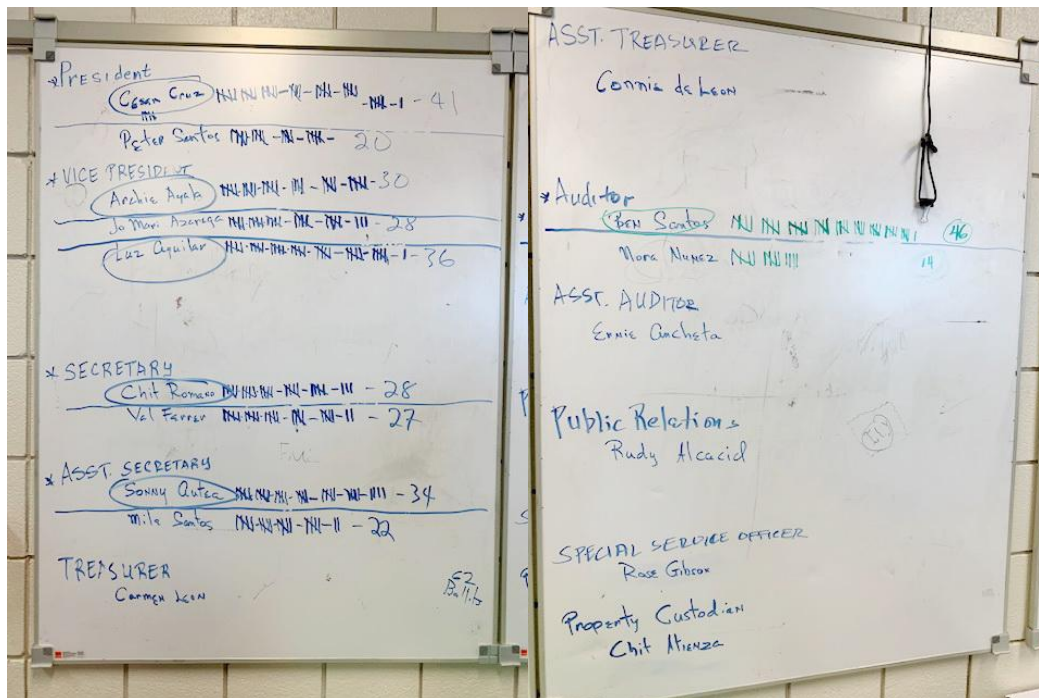 *President
Cesar Cruz - 41
Peter Santos 20
* VICE PRESIDENT
Archie Ayala - 30
Jo Mari Azarraga - 28
Luz Aguilar - 36
* SECRETARY
Chit Romano - 28
Val Ferrer - 27
* ASST. SECRETARY
Sonny Autea - 34
Mila Santos - 22
TREASURER
Carmen Leon
62
Ballots
ASST. TREASURER
Connie de Leon
* Auditor
Ben Santos 46
Nora Nunez 14
ASST. AUDITOR
Ernie Ancheta
Public Relations
Rudy Alcacid
SPECIAL SERVICE OFFICER
Rose Gibson
Property Custodian
Chit Atienza